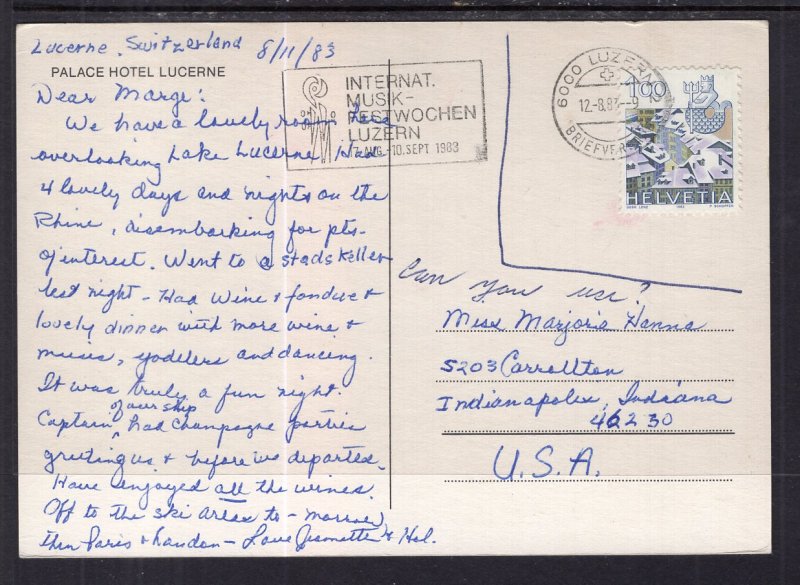 Lucerne, Switzerland 8/11/83
PALACE HOTEL LUCERNE
Dear Marge:
We have a lovely room here
overlooking Lake Lucerne. Had
4 lovely days and nights on the
Rhine, disembarking for pts.
of interest. Went to a stads keller
last night - Had wine & fondue &
lovely dinner with more wine &
music, yodelers and dancing.
It was truly a fun night.
Captain of our ship had champagne parties
greeting us & before we departed.
Have enjoyed all the wines.
Off to the ski areas to-morrow,
then Paris & London - Love Jeanette & Hal.
INTERNAT.
MUSIK-
FESTWOCHEN
LUZERN
17. AUG.-10. SEPT. 1983
6000 LUZERN 2
12.-8.83.-9
BRIEFVER
100
HELVETIA
1982
Can you use?
Miss Marjorie Hanna
5203 Carrollton
Indianapolis, Indiana
46230
U.S.A.